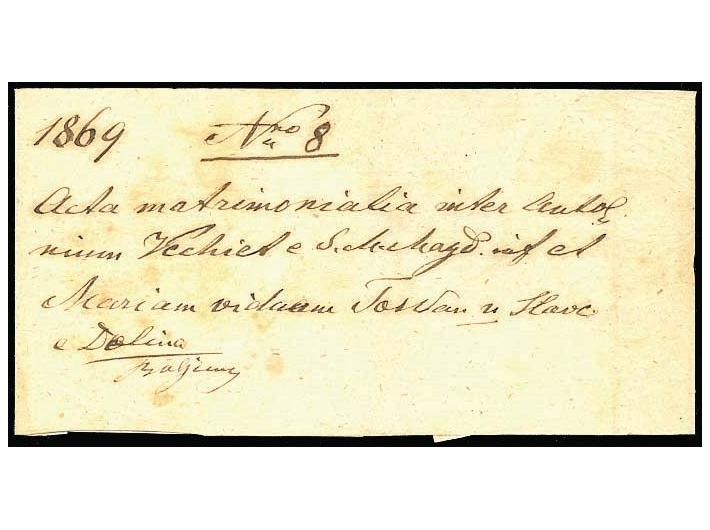 1869 Nro 8
Acta matrimonialia inter Anto-
nium Vechiet e S. M. Magd. inf et
Mariam viduam Toswan n Slavc
e Dolina